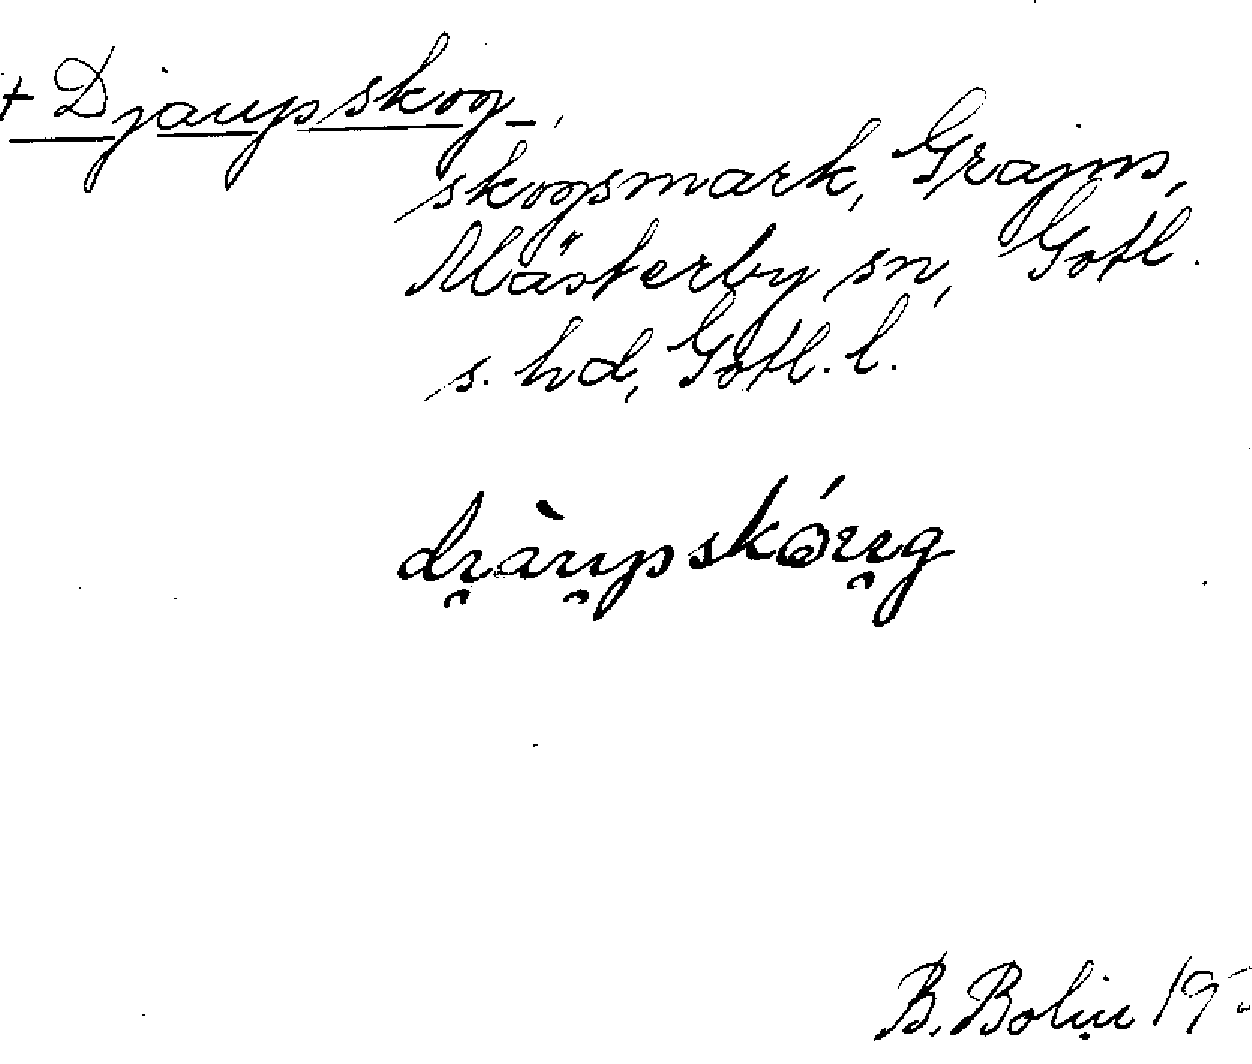 + Djaupskog,
skogsmark, Grajms,
Mästerby sn, Gotl.
s. hd, Gotl. l.
di̯àu̯pskóu̯g
B. Bolin